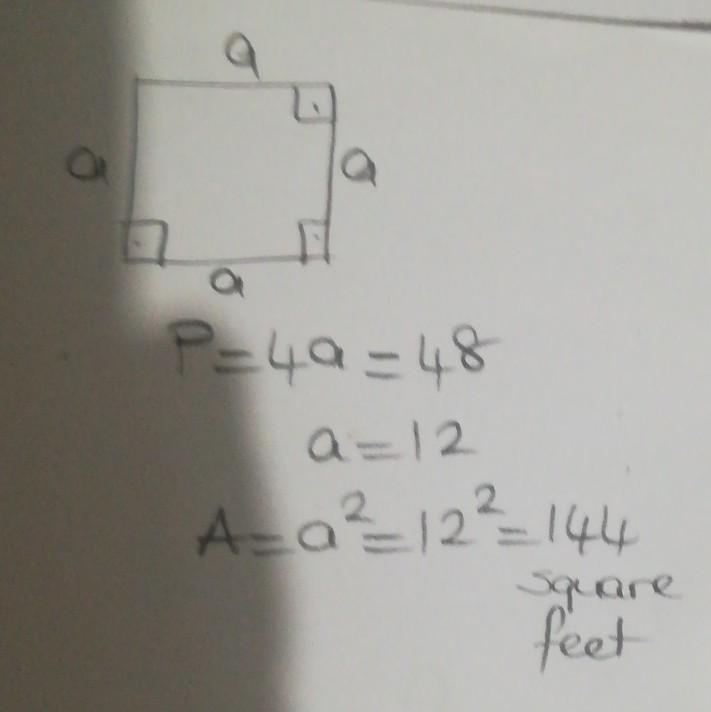 a
a a
a
P=4a=48
a=12
A=a²=12²=144
square
feet